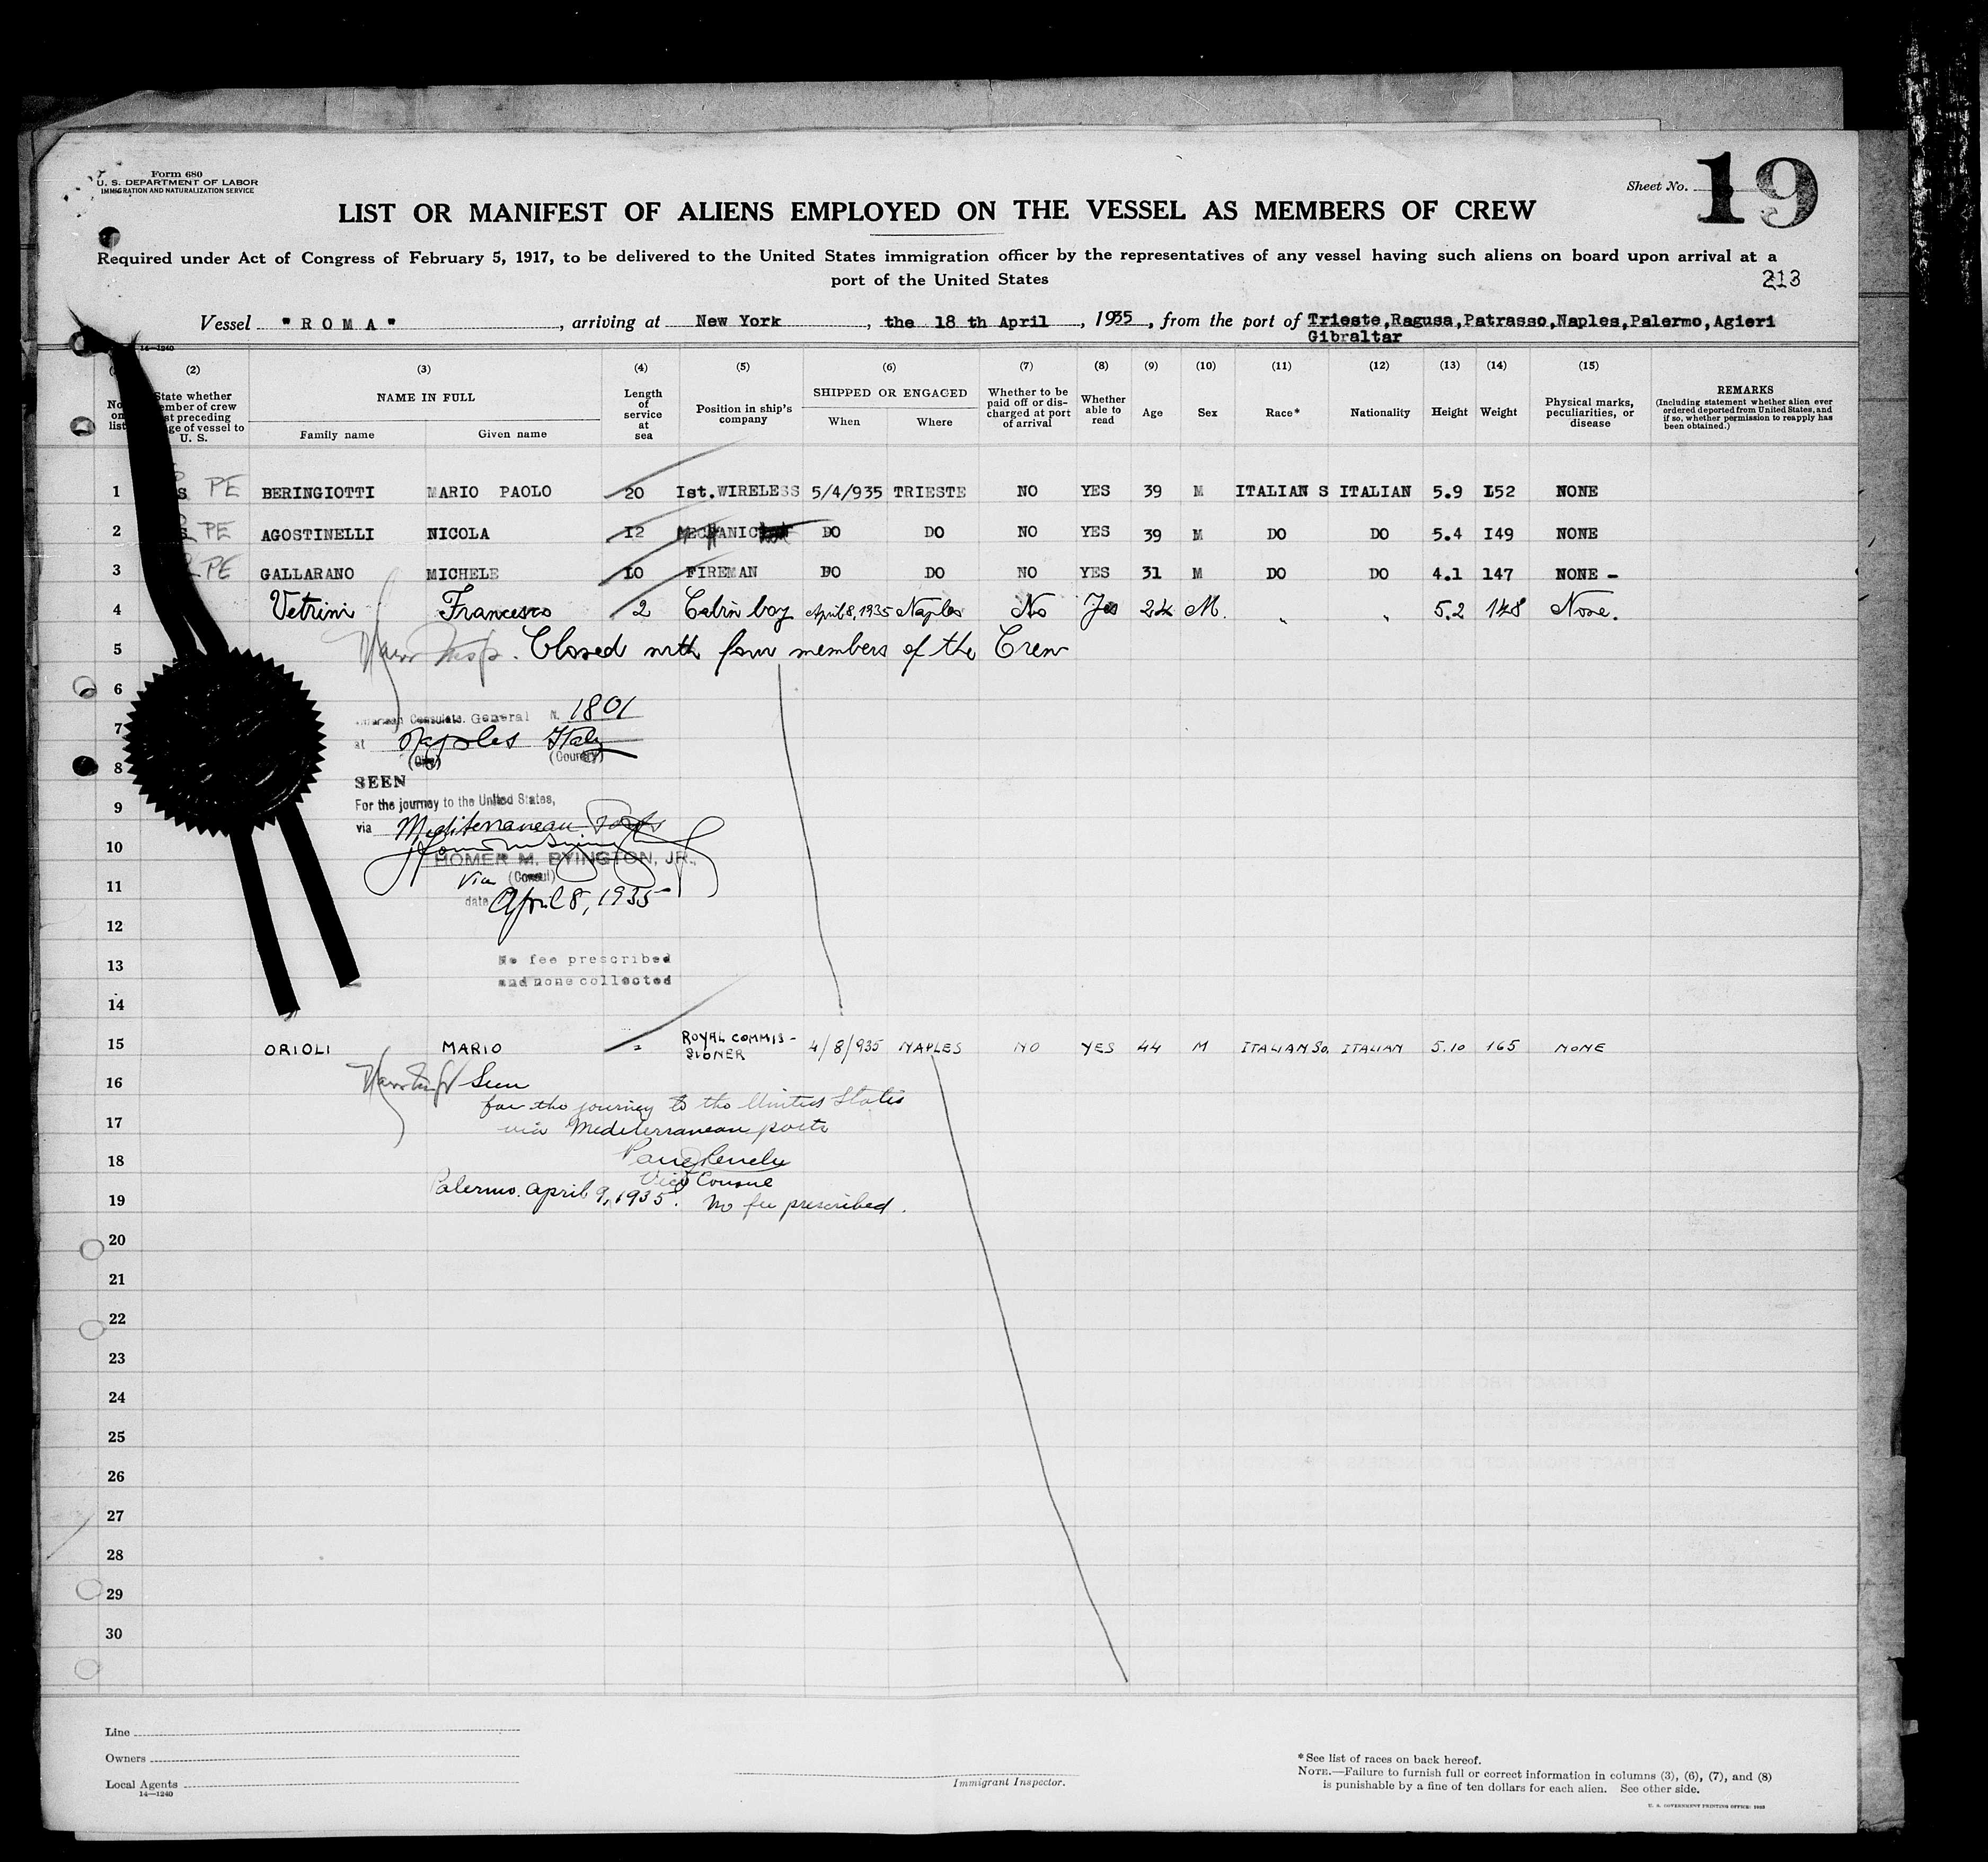 Form 680
U. S. DEPARTMENT OF LABOR
IMMIGRATION AND NATURALIZATION SERVICE
Sheet No. 19
LIST OR MANIFEST OF ALIENS EMPLOYED ON THE VESSEL AS MEMBERS OF CREW
Required under Act of Congress of February 5, 1917, to be delivered to the United States immigration officer by the representatives of any vessel having such aliens on board upon arrival at a
port of the United States
213
Vessel "ROMA", arriving at New York, the 18 th April, 1935, from the port of Trieste,Ragusa,Patrasso,Naples,Palermo,Agieri
Gibraltar
14—1240
(2) (3) (4) (5) (6) (7) (8) (9) (10) (11) (12) (13) (14) (15)
No. on list
State whether member of crew last preceding voyage of vessel to U. S.
NAME IN FULL
Family name Given name
Length of service at sea
Position in ship's company
SHIPPED OR ENGAGED
When Where
Whether to be paid off or discharged at port of arrival
Whether able to read
Age
Sex
Race*
Nationality
Height
Weight
Physical marks, peculiarities, or disease
REMARKS
(Including statement whether alien ever ordered deported from United States, and if so, whether permission to reapply has been obtained.)
1 S PE BERINGIOTTI MARIO PAOLO 20 Ist.WIRELESS 5/4/935 TRIESTE NO YES 39 M ITALIAN S ITALIAN 5.9 152 NONE
2 S PE AGOSTINELLI NICOLA 12 MECHANIC DO DO NO YES 39 M DO DO 5.4 149 NONE
3 PE GALLARANO MICHELE 10 FIREMAN DO DO NO YES 31 M DO DO 4.1 147 NONE -
4 Vetrini Francesco 2 Cabin boy April 8, 1935 Naples No Yes 24 M. " " 5.2 148 None.
5 Closed with four members of the Crew
6
American Consulate General N. 1801
7
at Naples Italy
(City) (Country)
8
SEEN
9
For the journey to the United States,
via Mediterranean Ports
10
HOMER M. BYINGTON, JR.,
Vice (Consul)
11
date April 8, 1935
12
No fee prescribed
13
and none collected
14
15 ORIOLI MARIO ROYAL COMMIS-SIONER 4/8/935 NAPLES NO YES 44 M ITALIAN So. ITALIAN 5.10 165 NONE
16 Seen
for the journey to the United States
17 via Mediterranean ports
18
Vice Consul
19 Palermo. April 9, 1935. No fee prescribed.
20
21
22
23
24
25
26
27
28
29
30
Line
Owners
Local Agents
14—1240
Immigrant Inspector.
* See list of races on back hereof.
NOTE.—Failure to furnish full or correct information in columns (3), (6), (7), and (8)
is punishable by a fine of ten dollars for each alien. See other side.